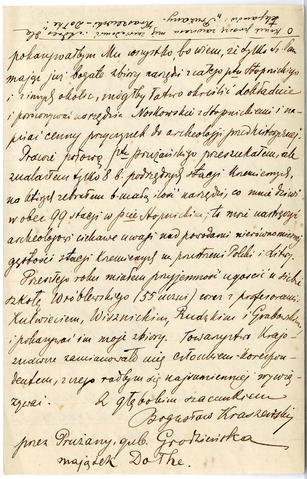 pokazywałbym Mu wszystko bo wiem, że tylko
mając już bogate zbiory narzędzi z całego ptu Stopnickiego
i innych okolic, mógłby łatwo określić dokładnie
i porównywać narzędzia Noskowskie z Stopnickiemi i na-
pisać cenny przyczynek do archeologji przedhistorycznej.
Prawie połowę ptu prużańskiego przeszukałem, ale
znalazłem tylko 8 b. podrzędnych stacji krzemiennych,
na których zebrałem b. małą ilość narzędzi, co mnie dziwi
wobec 99 stacji w pcie Stopnickim; to może nastręczyć
archeologowi ciekawe uwagi nad powodami nierównomiernej
gęstości stacji krzemiennych na przestrzeni Polski i Litwy.
Przeszłego roku miałem przyjemność ugościć u siebie
szkołę Wróblewskiego (55 uczni) wraz z profesorami
Wisznickim, Rudzkim i Grabowskim
i pokazywać im moje zbiory. Towarzystwo Krajo-
znawcze zamianowało mię członkiem-korespon-
dentem, z czego radbym się najsumienniej wywią-
zywać.
Z głębokim szacunkiem
Bogusław Kraszewski
przez Prużany, gub. Grodzieńska
majątek Dołhe.